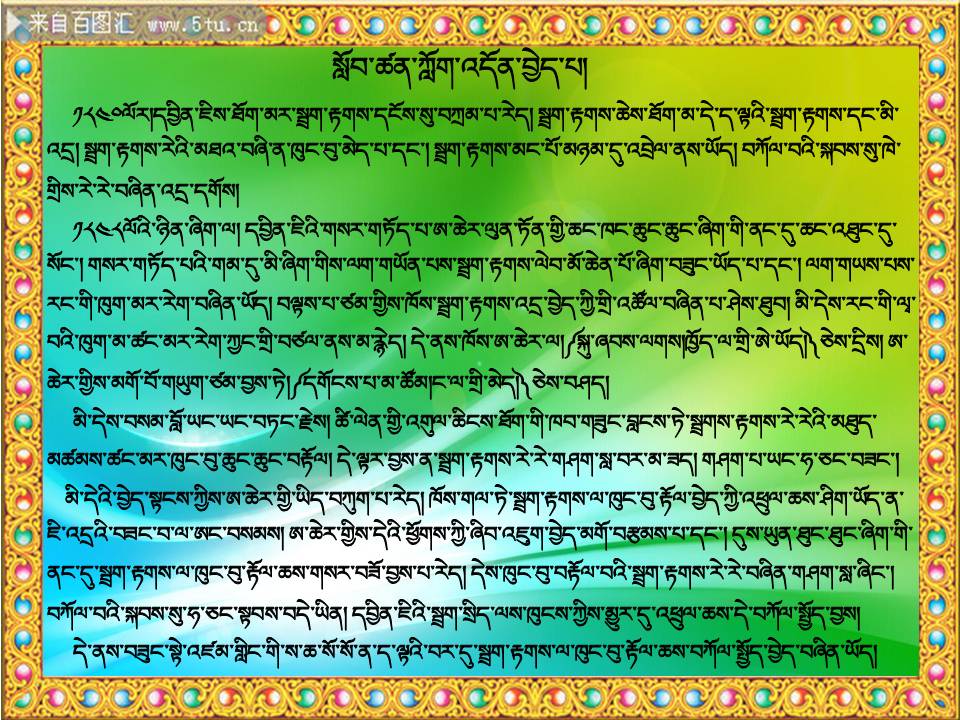 来自百图汇 www.5tu.cn
སློབ་ཚན་ཀློག་འདོན་བྱེད་པ།
༡༨༤༠ལོར།དབྱིན་ཇིས་ཐོག་མར་སྦྲག་རྟགས་དངོས་སུ་བཀྲམ་པ་རེད། སྦྲག་རྟགས་ཆེས་ཐོག་མ་དེ་ད་ལྟའི་སྦྲག་རྟགས་དང་མི་
འདྲ། སྦྲག་རྟགས་རེའི་མཐའ་བཞི་ན་ཁུང་བུ་མེད་པ་དང་། སྦྲག་རྟགས་མང་པོ་མཉམ་དུ་འབྲེལ་ནས་ཡོད། བཀོལ་བའི་སྐབས་སུ་ཁེ་
གྲིས་རེ་རེ་བཞིན་འདྲ་དགོས།
༡༨༤༨ལོའི་ཉིན་ཞིག་ལ། དབྱིན་ཇིའི་གསར་གཏོད་པ་ཨ་ཆེར་ལུན་ཏོན་གྱི་ཆང་ཁང་ཆུང་ཆུང་ཞིག་གི་ནང་དུ་ཆང་འཐུང་དུ་
སོང་། གསར་གཏོད་པའི་གམ་དུ་མི་ཞིག་གིས་ལག་གཡོན་པས་སྦྲག་རྟགས་ལེབ་མོ་ཆེན་པོ་ཞིག་བཟུང་ཡོད་པ་དང་། ལག་གཡས་པས་
རང་གི་ཁུག་མར་རེག་བཞིན་ཡོད། བལྟས་པ་ཙམ་གྱིས་ཁོས་སྦྲག་རྟགས་འདྲ་བྱེད་ཀྱི་གྲི་འཚོལ་བཞིན་པ་ཤེས་ཐུབ། མི་དེས་རང་གི་ལྭ་
བའི་ཁུག་མ་ཚང་མར་རེག་ཀྱང་གྲི་བཙལ་ནས་མ་རྙེད། དེ་ནས་ཁོས་ཨ་ཆེར་ལ། ༼སྐུ་ཞབས་ལགས།ཁྱོད་ལ་གྲི་ཨེ་ཡོད།༽ ཅེས་དྲིས། ཨ་
ཆེར་གྱིས་མགོ་བོ་གཡུག་ཙམ་བྱས་ཏེ། ༼དགོངས་པ་མ་ཚོམ།ང་ལ་གྲི་མེད།༽ ཅེས་བཤད།
མི་དེས་བསམ་བློ་ཡང་ཡང་བཏང་རྗེས། ཚི་ལེན་གྱི་འགུལ་ཆིངས་ཐོག་གི་ཁབ་གཟུང་བླངས་ཏེ་སྦྲགས་རྟགས་རེ་རེའི་མཐུད་
མཚམས་ཚང་མར་ཁུང་བུ་ཆུང་ཆུང་བརྟོལ། དེ་ལྟར་བྱས་ན་སྦྲག་རྟགས་རེ་རེ་གཤག་སླ་བར་མ་ཟད། གཤག་པ་ཡང་ཧ་ཅང་བཟང་།
མི་དེའི་བྱེད་སྟངས་ཀྱིས་ཨ་ཆེར་གྱི་ཡིད་བཀུག་པ་རེད། ཁོས་གལ་ཏེ་སྦྲག་རྟགས་ལ་ཁུང་བུ་རྟོལ་བྱེད་ཀྱི་འཕྲུལ་ཆས་ཤིག་ཡོད་ན་
ཇི་འདྲའི་བཟང་བ་ལ་ཨང་བསམས། ཨ་ཆེར་གྱིས་དེའི་ཕྱོགས་ཀྱི་ཞིབ་འཇུག་བྱེད་མགོ་བརྩམས་པ་དང་། དུས་ཡུན་ཐུང་ཐུང་ཞིག་གི་
ནང་དུ་སྦྲག་རྟགས་ལ་ཁུང་བུ་རྟོལ་ཆས་གསར་བཟོ་བྱས་པ་རེད། དེས་ཁུང་བུ་བརྟོལ་བའི་སྦྲག་རྟགས་རེ་རེ་བཞིན་གཤག་སླ་ཞིང་།
བཀོལ་བའི་སྐབས་སུ་ཧ་ཅང་སྟབས་བདེ་ཡིན། དབྱིན་ཇིའི་སྦྲག་སྲིད་ལས་ཁུངས་ཀྱིས་མྱུར་དུ་འཕྲུལ་ཆས་དེ་བཀོལ་སྤྱོད་བྱས།
དེ་ནས་བཟུང་སྟེ་འཛམ་གླིང་གི་ས་ཆ་སོ་སོ་ན་ད་ལྟའི་བར་དུ་སྦྲག་རྟགས་ལ་ཁུང་བུ་རྟོལ་ཆས་བཀོལ་སྤྱོད་བྱེད་བཞིན་ཡོད།